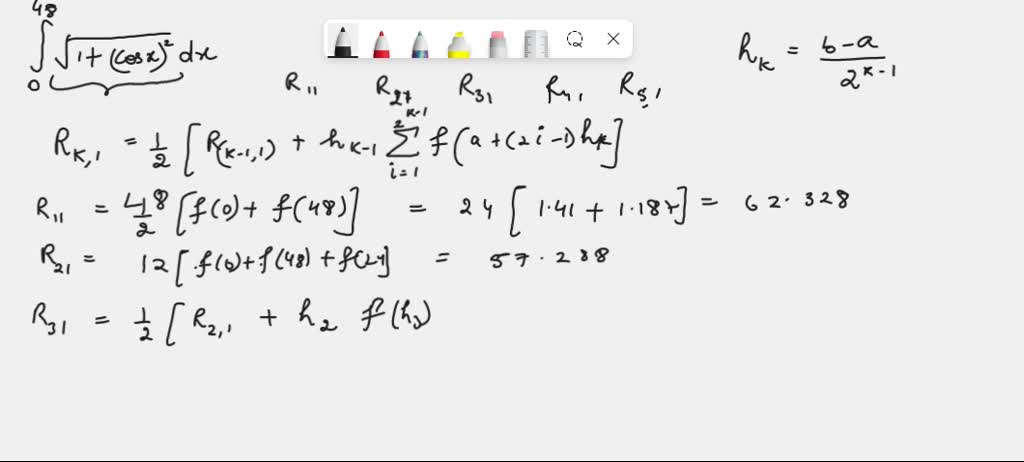 ∫₀⁴⁸ √(1 + (cos x)²) dx
h_K = (b-a)/2^(K-1)
R₁₁ R₂₁ R₃₁ R₄₁ R₅₁
R_K,₁ = 1/2 [R_(K-1,1) + h_K-1 Σ_(i=1)^(2^(K-1)) f(a+(2i-1)h_K]
R₁₁ = 48/2 [f(0)+ f(48)] = 24 [1.41 + 1.187] = 62.328
R₂₁ = 12[f(0)+f(48)+f(24] = 57.288
R₃₁ = 1/2 [R₂,₁ + h₂ f(h₃)